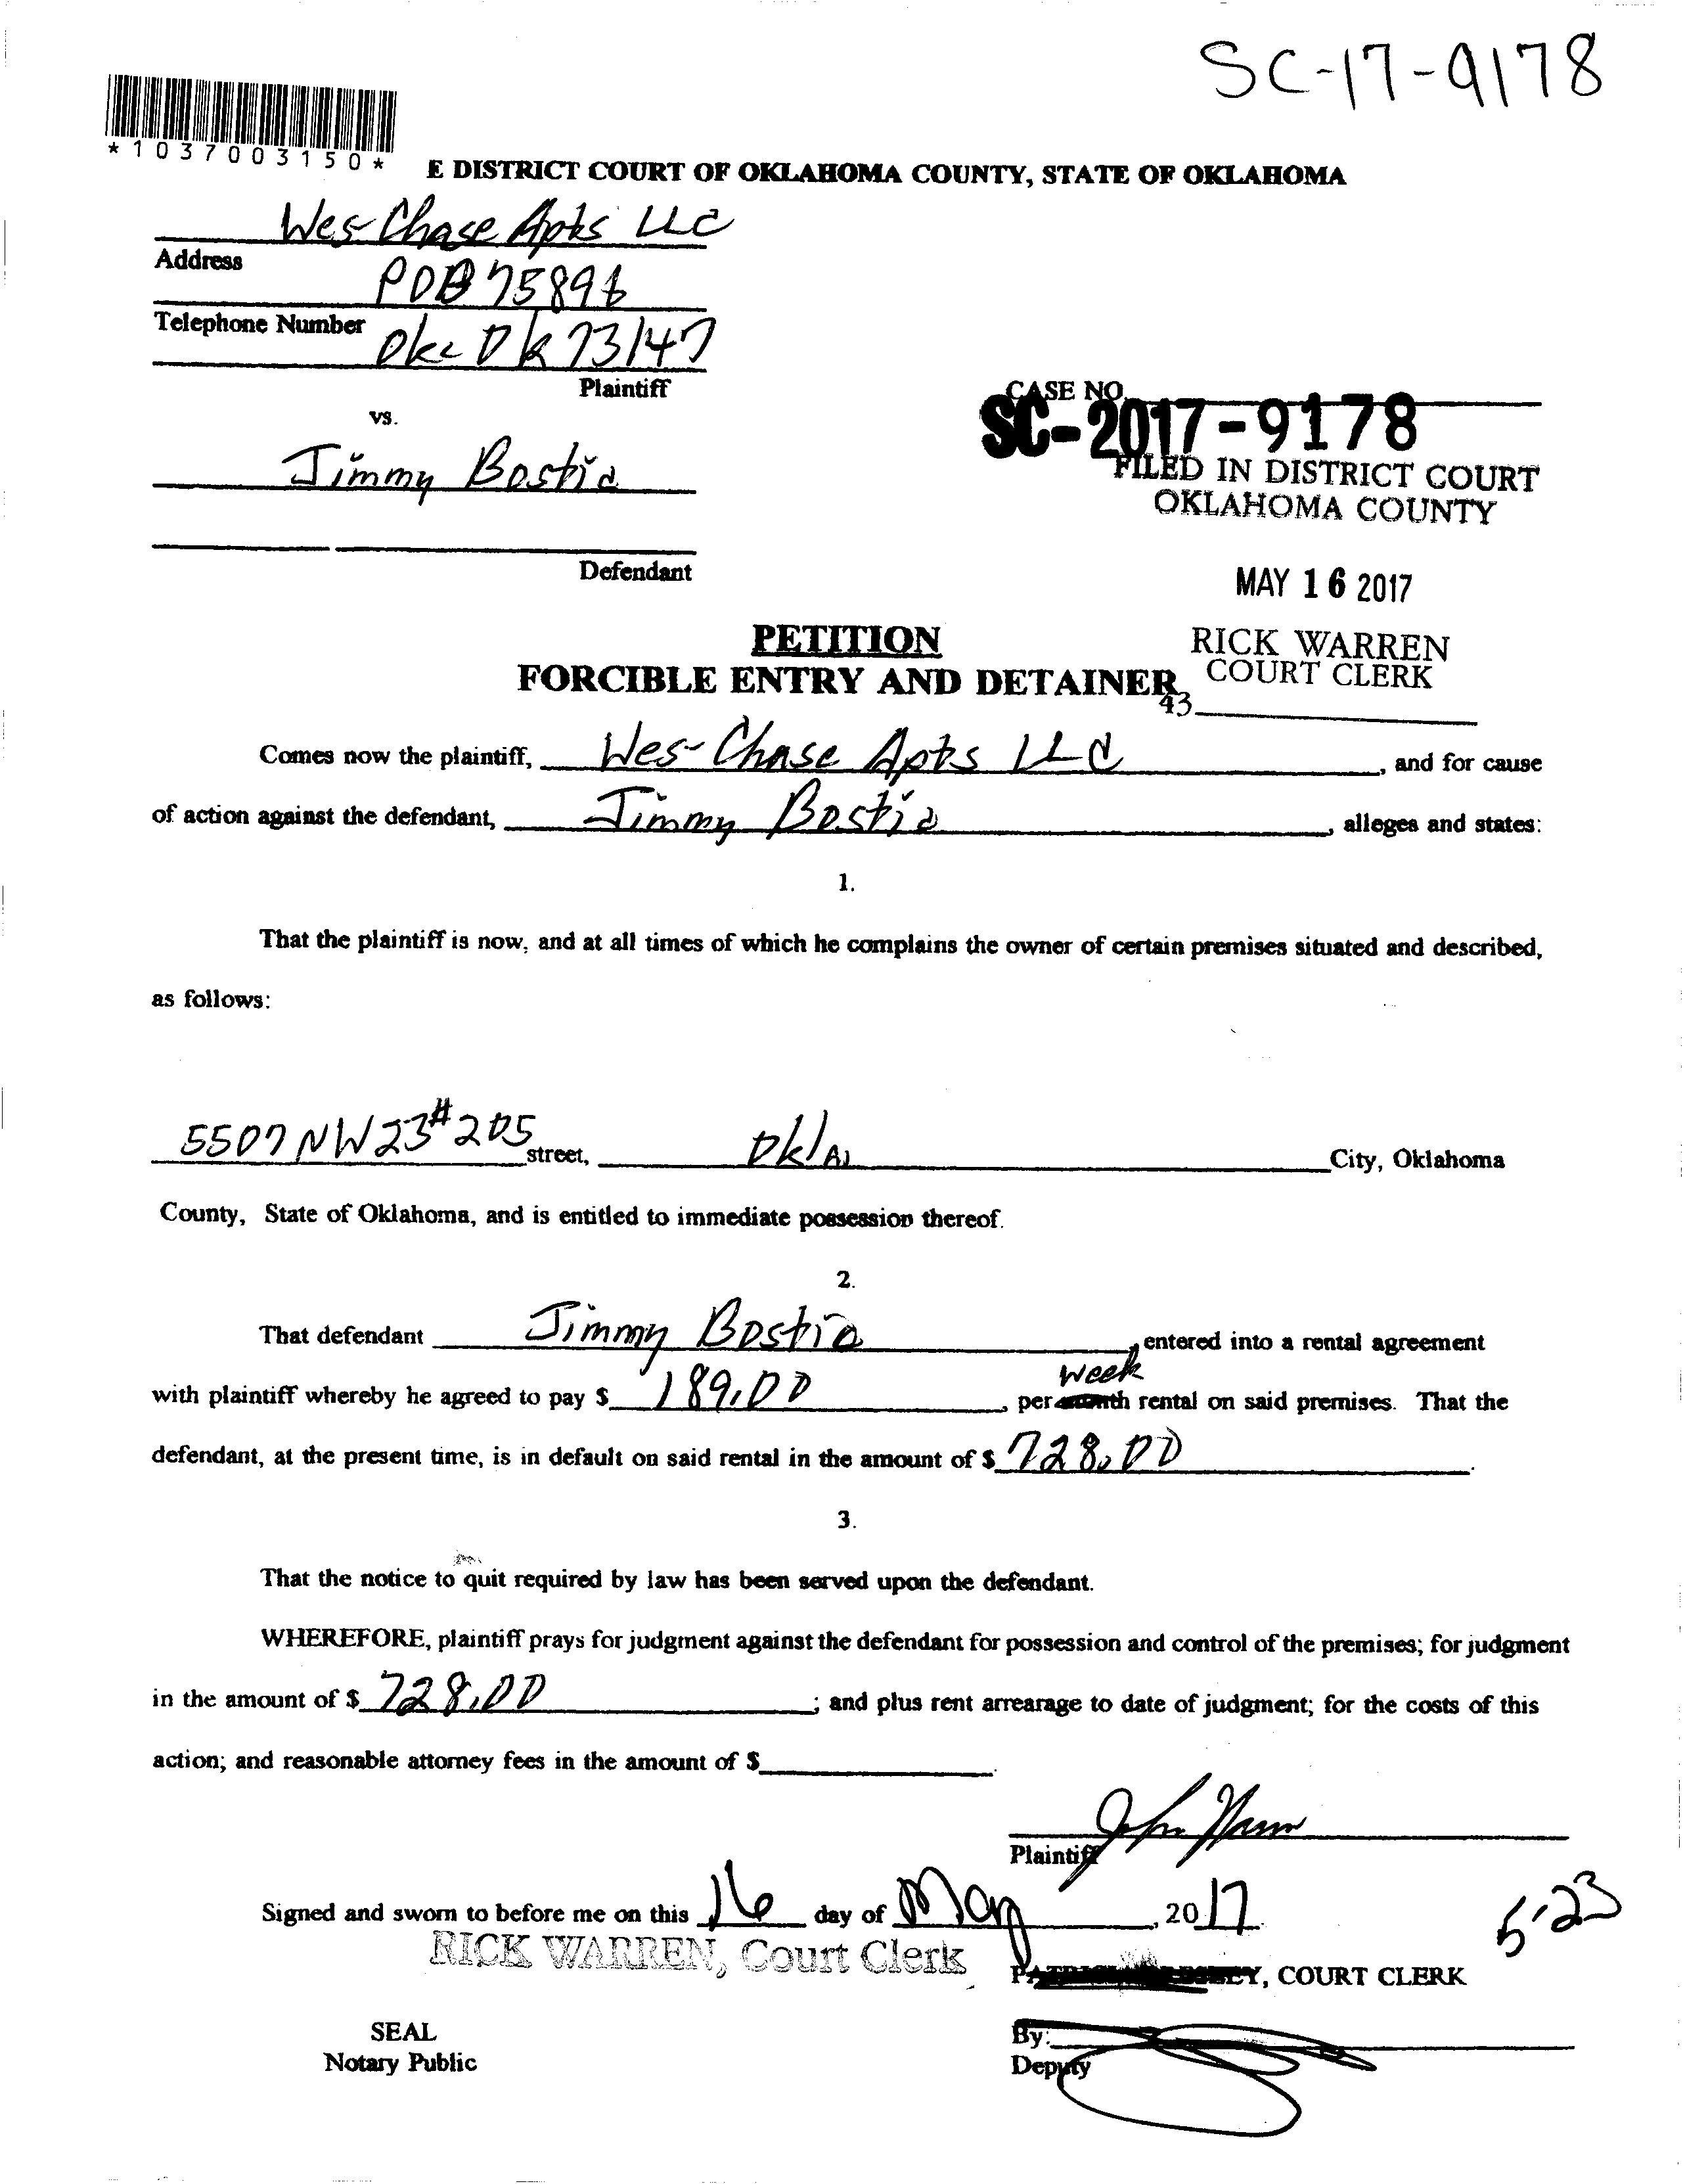 SC-17-9178
*1037003150*
E DISTRICT COURT OF OKLAHOMA COUNTY, STATE OF OKLAHOMA
Wes-Chase Apts LLC
Address
POB 75896
Telephone Number
Okc Ok 73147
Plaintiff
vs.
CASE NO.
SC-2017-9178
Jimmy Bostic
FILED IN DISTRICT COURT
OKLAHOMA COUNTY
Defendant
MAY 16 2017
PETITION
RICK WARREN
COURT CLERK
FORCIBLE ENTRY AND DETAINER
43
Comes now the plaintiff, Wes-Chase Apts LLC, and for cause
of action against the defendant, Jimmy Bostic, alleges and states:
1.
That the plaintiff is now, and at all times of which he complains the owner of certain premises situated and described,
as follows:
5507 NW 23 # 205 street, Okla City, Oklahoma
County, State of Oklahoma, and is entitled to immediate possession thereof.
2.
That defendant Jimmy Bostic, entered into a rental agreement
week
with plaintiff whereby he agreed to pay $ 189.00, per month rental on said premises. That the
defendant, at the present time, is in default on said rental in the amount of $ 728.00.
3.
That the notice to quit required by law has been served upon the defendant.
WHEREFORE, plaintiff prays for judgment against the defendant for possession and control of the premises; for judgment
in the amount of $ 728.00; and plus rent arrearage to date of judgment; for the costs of this
action; and reasonable attorney fees in the amount of $
Plaintiff
Signed and sworn to before me on this 16 day of May, 2017
5-23
RICK WARREN, Court Clerk
, COURT CLERK
SEAL
By:
Notary Public
Deputy